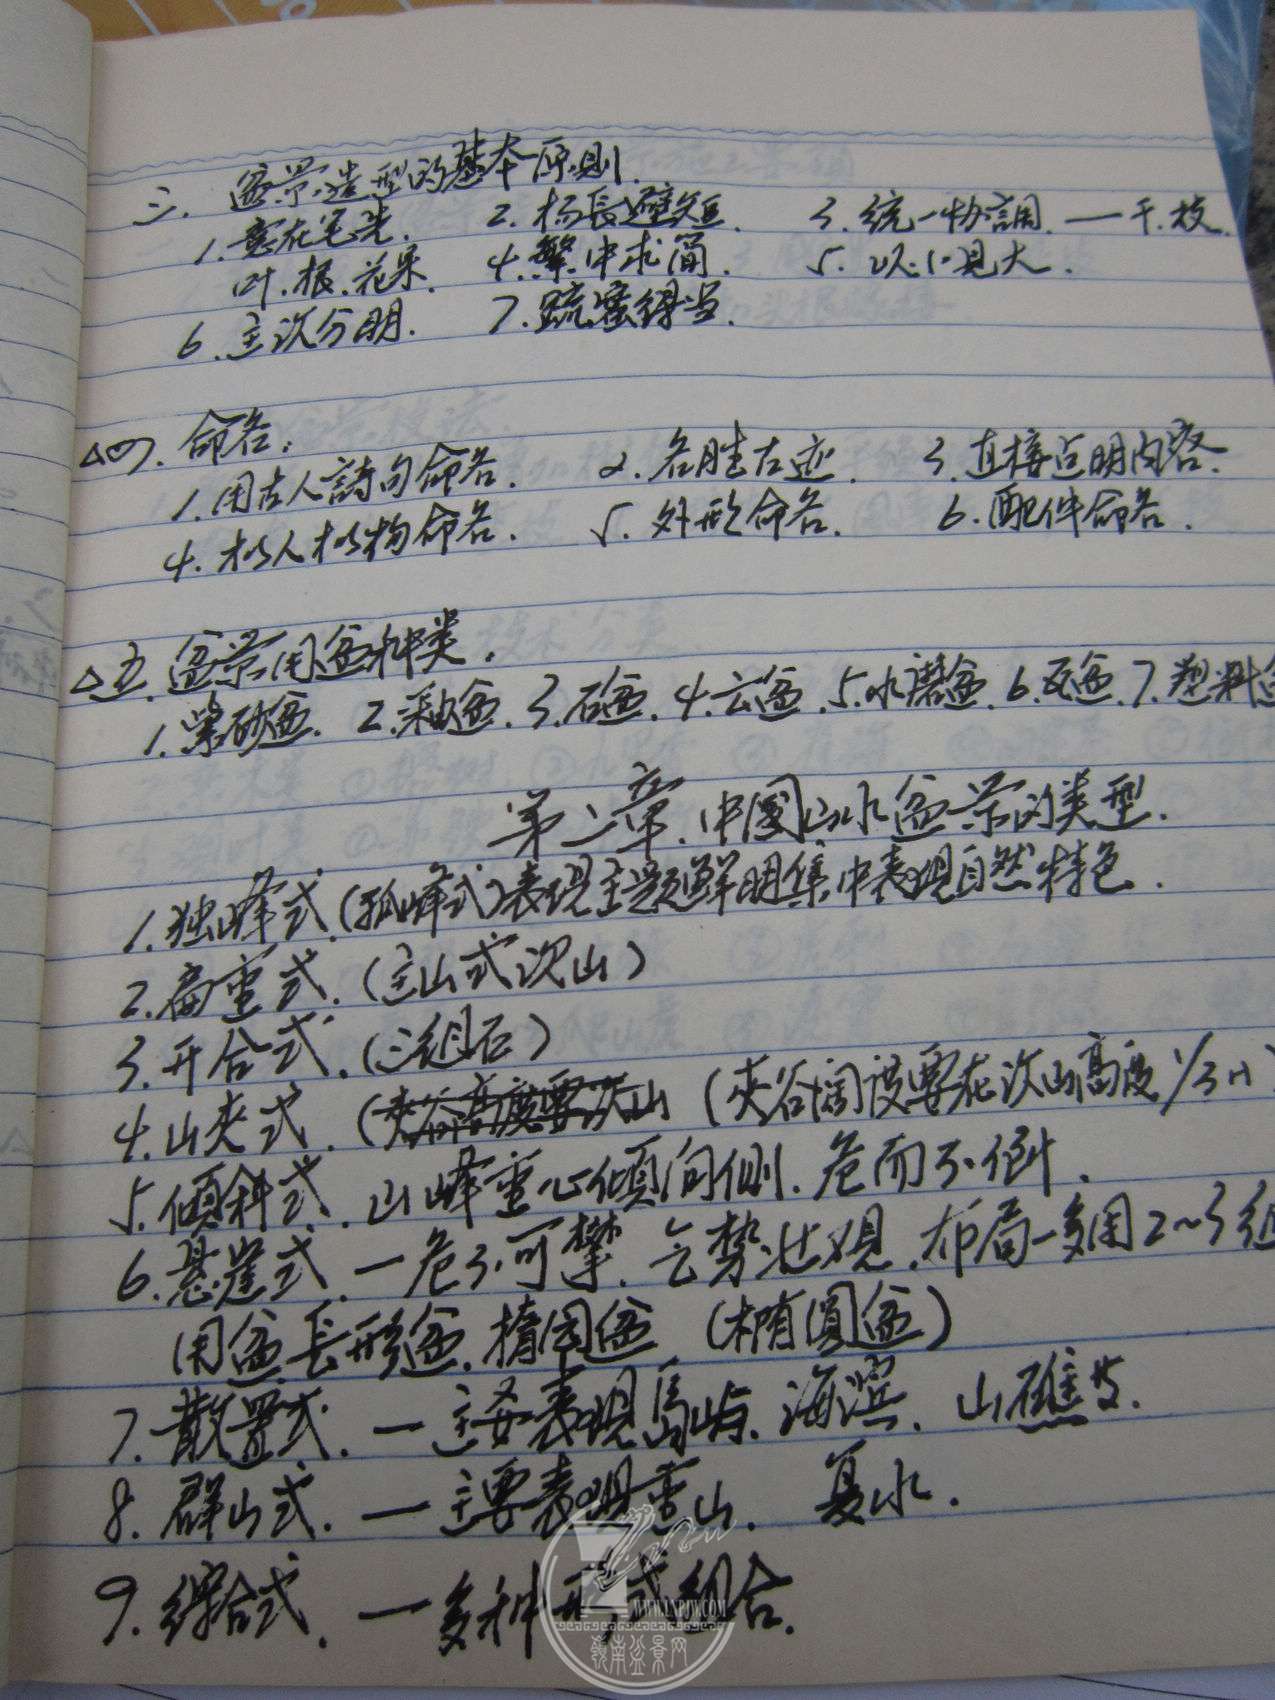 三.盆景造型的基本原则.
1.意在笔先. 2.杨長避短. 3.统一协調.—干.枝.
叶.根.花果. 4.繁中求简. 5.以小見大.
6.主次分明. 7.疏蜜得当.
△四.命名:
1.用古人詩句命名. 2.名胜古迹. 3.直接点明内容.
4.拟人拟物命名. 5.外形命名. 6.配件命名.
△五.盆景用盆种类.
1.紫砂盆. 2.釉盆. 3.石盆. 4.云盆. 5.水磨盆. 6.瓦盆. 7.塑料盆
第二章.中國山水盆景的类型.
1.独峰式.(孤峰式)表现主题鲜明集中表现自然特色.
2.扁重式.(主山式次山)
3.开合式.(三组石)
4.山夹式.(夹谷高度要次山(夹谷阔度要在次山高度1/3小)
5.傾斜式.山峰重心傾向侧.危而不倒.
6.悬崖式.一危不可攀.气势壮观.布局一多用2~3组
用盆.長形盆.撱园盆(椭圓盆)
7.散置式.一主要表现島屿.海滨.山礁
8.群山式.一主要表现重山.复水.
9.综合式.一多种形式组合.
WWW.LNPJW.COM
嶺南盆景网